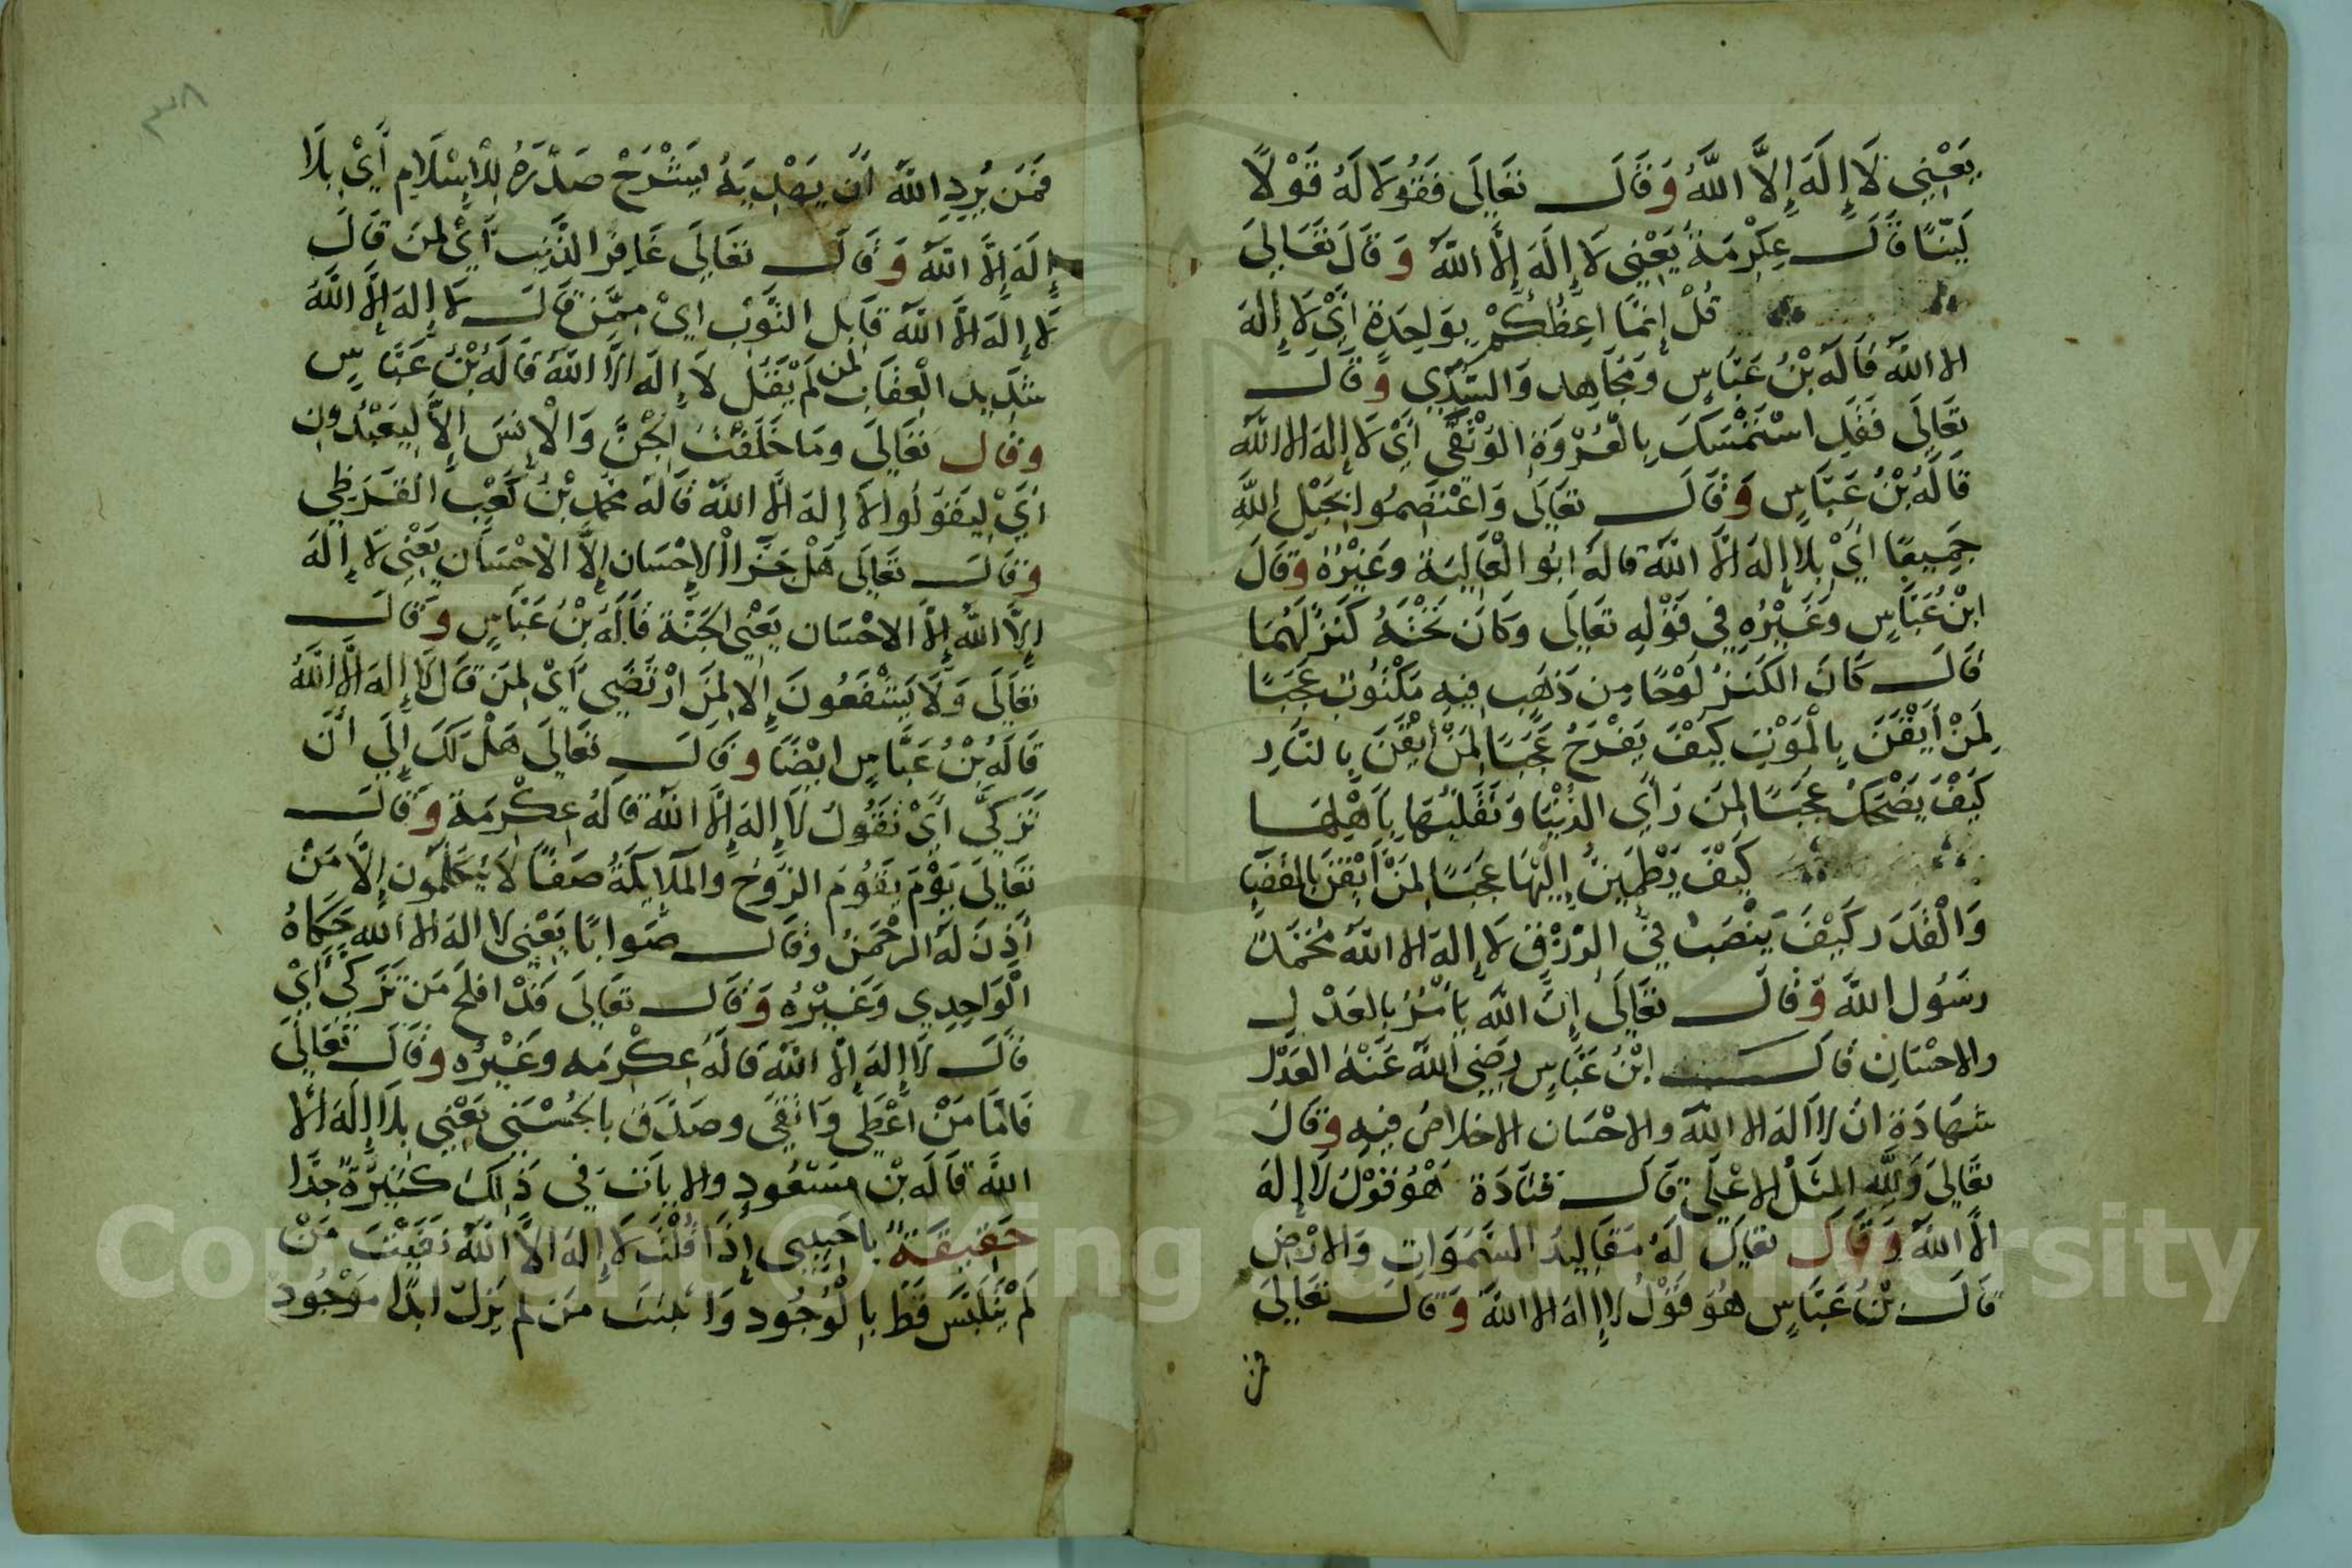 يَعْنِي لَا إِلَهَ إِلَّا اللَّهُ وَقَالَ تَعَالَى فَقُولَا لَهُ قَوْلًا
لَيِّنًا قَالَ عِكْرِمَةُ يَعْنِي لَا إِلَهَ إِلَّا اللَّهُ وَقَالَ تَعَالَى
قُلْ إِنَّمَا اَعِظُكُمْ بِوَاحِدَةٍ أَيْ لَا إِلَهَ
الا اللَّهُ قَالَهُ بْنُ عَبَّاسٍ وَمُجَاهِد وَالسُّدِّي وَقَالَ
تَعَالَى فَقَدِ اسْتَمْسَكَ بِالْعُرْوَةِ الْوُثْقَى أَيْ لَا إِلَهَ الا اللَّه
قَالَهُ بْنُ عَبَّاسٍ وَقَالَ تَعَالَى وَاعْتَصِمُوا بِحَبْلِ اللَّهِ
جَمِيعًا أَيْ بِلَا إِلَهَ الَّا اللَّه قالَهُ ابُو الْعَالِيَة وَغَيْرُهُ وَقَالَ
ابْنُ عَبَّاسٍ وَغَيْرُهِ فِي قَوْلِهِ تَعَالَى وَكَانَ تَحْتَهُ كَنْزٌ لَهُمَا
قَالَ كَانَ الكَنْزُ لَوْحًا مِن ذَهَبٍ فِيهِ مَكْتُوبٌ عَجَبًا
لِمَنْ أَيْقَنَ بِالْمَوْتِ كَيْفَ يَفْرَحُ عَجَبًا لِمَنْ أَيْقَنَ بِالنَّارِ
كَيْفَ يَضْحَكُ عَجَبًا لِمَنْ رَأَى الدُّنْيَا وَتَقَلُّبَهَا بِأَهْلِهَا
كَيْفَ يَطْمَئِنُّ إِلَيْهَا عَجَبًا لِمَنْ أَيْقَنَ بِالْقَضَا
وَالْقَدَرِ كَيْفَ يَنْصَبُ فِي الرِّزْقِ لَا إِلَهَ الا اللَّهُ مُحَمَّدٌ
رَسُول اللَّه وَقَالَ تَعَالَى إِنَّ اللَّهَ يَأْمُرُ بِالعَدْلِ
والاحْسَانِ قَالَ ابْنُ عَبَّاسٍ رَضِيَ اللَّهُ عَنْهُ العَدْل
شَهَادَة انْ لا الَهَ الا اللَّهُ والاحْسَان الاخلاصُ فِيهِ وَقَالَ
تَعَالَى وَلِلَّهِ المَثَلُ الاعْلَى قَالَ قَتَادَة هُوَ قَوْلُ لَا إِلَهَ
الَّا اللَّه وَقَالَ تَعَالَى لَهُ مَقَالِيدُ السَّمَوَاتِ وَالارْضِ
قَالَ بْنُ عَبَّاسٍ هُوَ قَوْلُ لا إِلهَ الا اللَّه وَقَالَ تَعَالَى
فمن
٣٨
فَمَن يُرِدِ اللَّهُ أَن يَهْدِيَهُ يَشْرَحْ صَدْرَهُ لِلْإِسْلَامِ أَيْ بِلَا
إِلَهَ إِلَّا اللَّه وَقَالَ تَعَالَى غَافِرِ الذَّنْبِ أَيْ لِمَن قَالَ
لَا إِلَهَ الَّا اللَّه قَابِلِ التَّوْبِ ايْ مِمَّن قَالَ لَا إِلَهَ إِلَّا اللَّه
شَدِيدِ الْعِقَابِ لمن لَمْ يَقُلْ لَا إِلَهَ الَّا اللَّه قَالَهُ بْنُ عَبَّاسٍ
وقال تَعَالَى وَمَا خَلَقْتُ الْجِنَّ وَالْإِنسَ إِلَّا لِيَعْبُدُونِ
أَيْ لِيَقُولُوا لَا إِلَهَ الَّا اللَّه قَالَهُ محمد بْنُ كَعْبٍ القُرَظِي
وَقَالَ تَعَالَى هَلْ جَزَاْ الْإِحْسَان إِلَّا الْاحْسَان يَعْنِي لَا إِلَهَ
إِلَّا اللَّهُ إِلَّا الاحْسَان يَعْنِي الجَنَّة قَالَهُ بْنُ عَبَّاسٍ وَقَالَ
تَعَالَى وَلَا يَشْفَعُونَ إِلَّا لِمَنِ ارْتَضَى أَيْ لِمَنْ قَالَ لَا إِلَهَ الَّا اللَّهُ
قَالَهُ بْنُ عَبَّاسٍ ايْضًا وقَالَ تَعَالَى هَلْ لَكَ إِلَى أَنْ
تَزَكَّى أَيْ تَقُولَ لَا إِلَهَ إِلَّا اللَّه قَالَهُ عِكْرِمَة وَقَالَ
تَعَالَى يَوْمَ يَقُومُ الرُّوحُ وَالْمَلَائِكَةُ صَفًّا لَا يَتَكَلَّمُونَ إِلَّا مَنْ
أَذِنَ لَهُ الرَّحْمَنُ وَقَالَ صَوَابًا يَعْنِي لا الَهَ الا اللَّه حَكَاهُ
الْوَاحِدِي وَغَيْرُهُ وَقَالَ تَعَالَى قَدْ افْلَحَ مَن تَزَكَّى أَيْ
قَالَ لَا إِلَهَ إِلَّا اللَّه قَالَهُ عِكْرِمَه وغَيْرُه وقَالَ تَعَالَى
فَامَّا مَنْ أَعْطَى وَاتَّقَى وصَدَّقَ بِالْحُسْنَى يَعْنِي بِلَا إِلَهَ الَّا
اللَّه قَالَهُ بْن مَسْعُودٍ والايَات فِي ذَلِكَ كَثِيرَةٌ جِدًّا
حَقِيقَةٌ يا حَبِيبِي إِذَا قُلْتَ لَا إِلَهَ الَّا اللَّه نَفَيْتَ مَنْ
لَمْ يَتَلَبَّسْ قَطُّ بِالْوُجُود وَاثبتَّ مَن لم يَزَلْ ابدًا مَوْجُود
Copyright © King Saud University